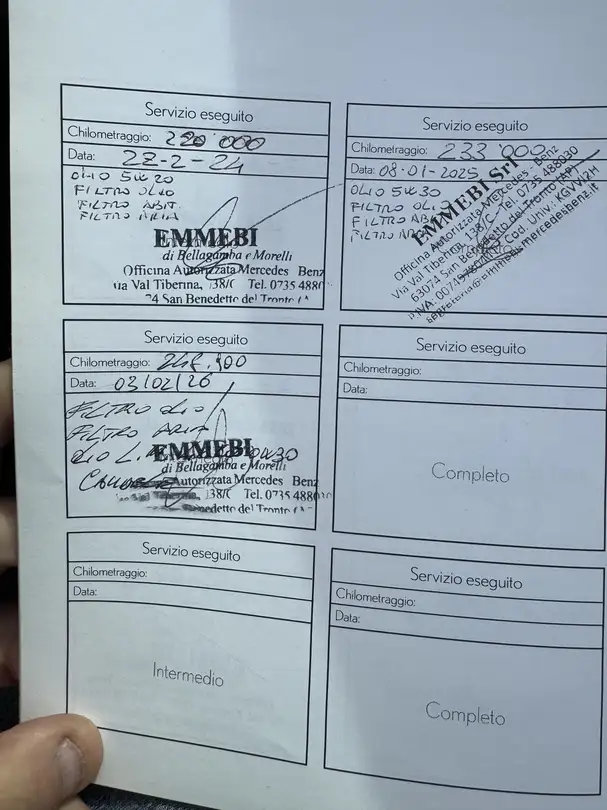 Servizio eseguito
Chilometraggio: 220'000
Data: 22-2-24
OLIO 5W30
FILTRO OLIO
FILTRO ABIT.
FILTRO ARIA
EMMEBI
di Bellagamba e Morelli
Officina Autorizzata Mercedes Benz
Via Val Tiberina, 138/C Tel. 0735 4880
74 San Benedetto del Tronto
Servizio eseguito
Chilometraggio: 233'000
Data: 08-01-2025
OLIO 5W30
FILTRO OLIO
FILTRO
FILTRO
EMMEBI Srl
Officina Autorizzata Mercedes - Benz
Via Val Tiberina, 138/C - Tel. 0735 488030
63074 San Benedetto del Tronto (AP)
P.IVA: Cod. Univ.
mercedesbenz.it
Servizio eseguito
Chilometraggio:
Data: 03/02/26
FILTRO OLIO
FILTRO ARIA
OLIO
EMMEBI
di Bellagamba e Morelli
Autorizzata Mercedes Benz
138/C Tel. 0735 488
Benedetto del Tronto
Servizio eseguito
Chilometraggio:
Data:
Completo
Servizio eseguito
Chilometraggio:
Data:
Intermedio
Servizio eseguito
Chilometraggio:
Data:
Completo